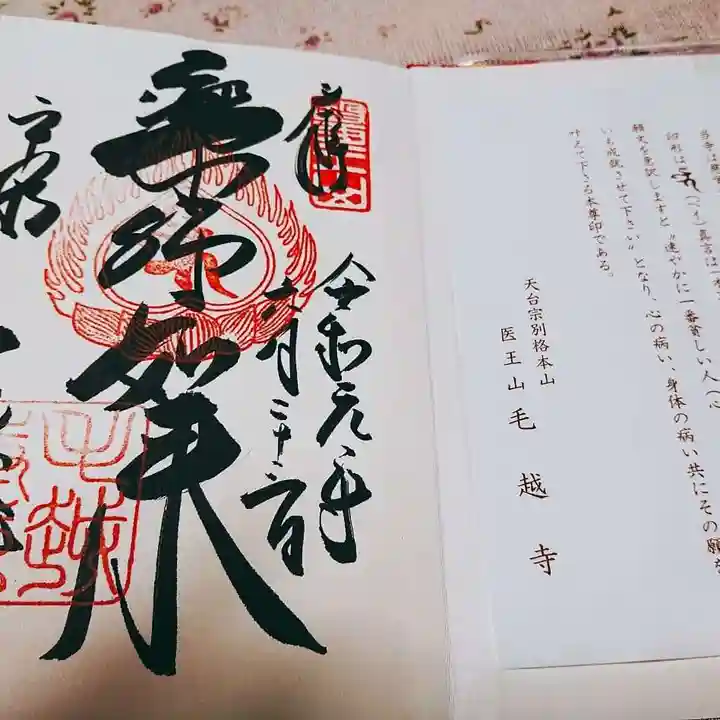 当寺は薬師
印形は (バイ)真言は一
願文を意訳しますと〝速やかに一番貧しい人(心
いも成就させて下さい〟となり、心の病い、身体の病い共にその願を
叶えて下さる本尊印である。
天台宗別格本山
医王山 毛越寺
奉拝
令和元年
薬師如来